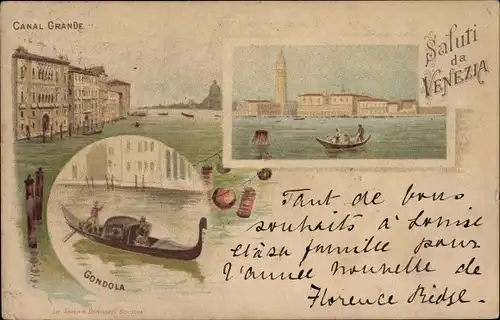 CANAL GRANDE
Saluti
da
VENEZIA
Tant de bons
souhaits à Louise
et à sa famille pour
l'année nouvelle de
Florence Ridge.
GONDOLA